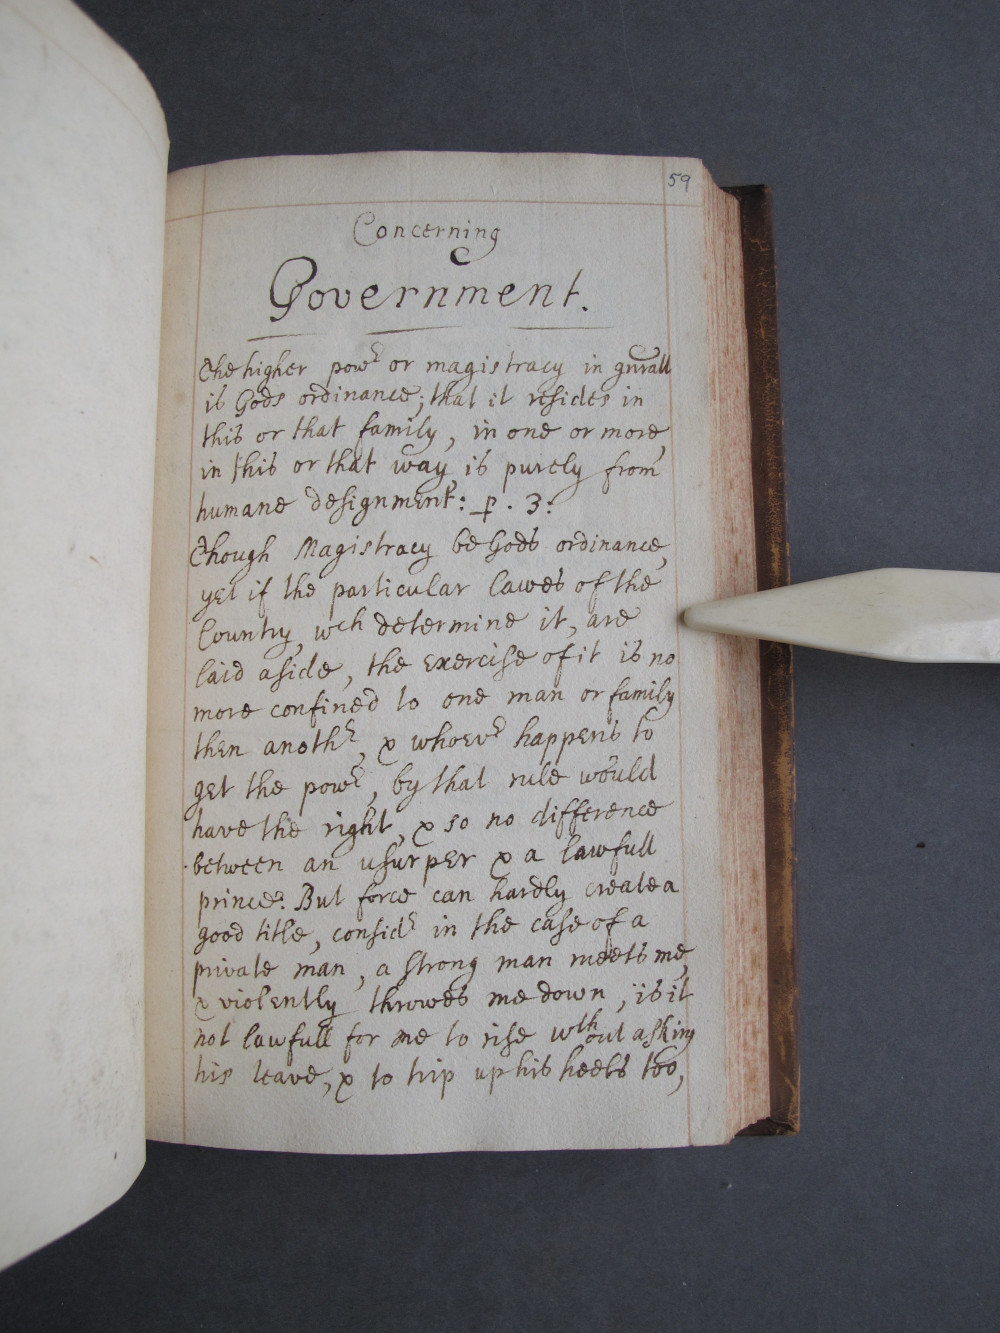 59
Concerning
Government.
The higher powr or magistracy in gnrall
is Gods ordinance; that it resides in
this or that family, in one or more,
in this or that way, is purely from
humane designment: p. 3:
Though Magistracy be Gods ordinance,
yet if the particular lawes of the
Country, wch determine it, are
laid aside, the exercise of it is no
more confined to one man or family
then anothr, & whoevr happens to
get the powr, by that rule would
have the right, & so no difference
between an usurper & a lawfull
prince. But force can hardly create a
good title, considr in the case of a
private man, a strong man meets me,
& violently throwes me down, is it
not lawfull for me to rise wthout asking
his leave, & to trip up his heels too,